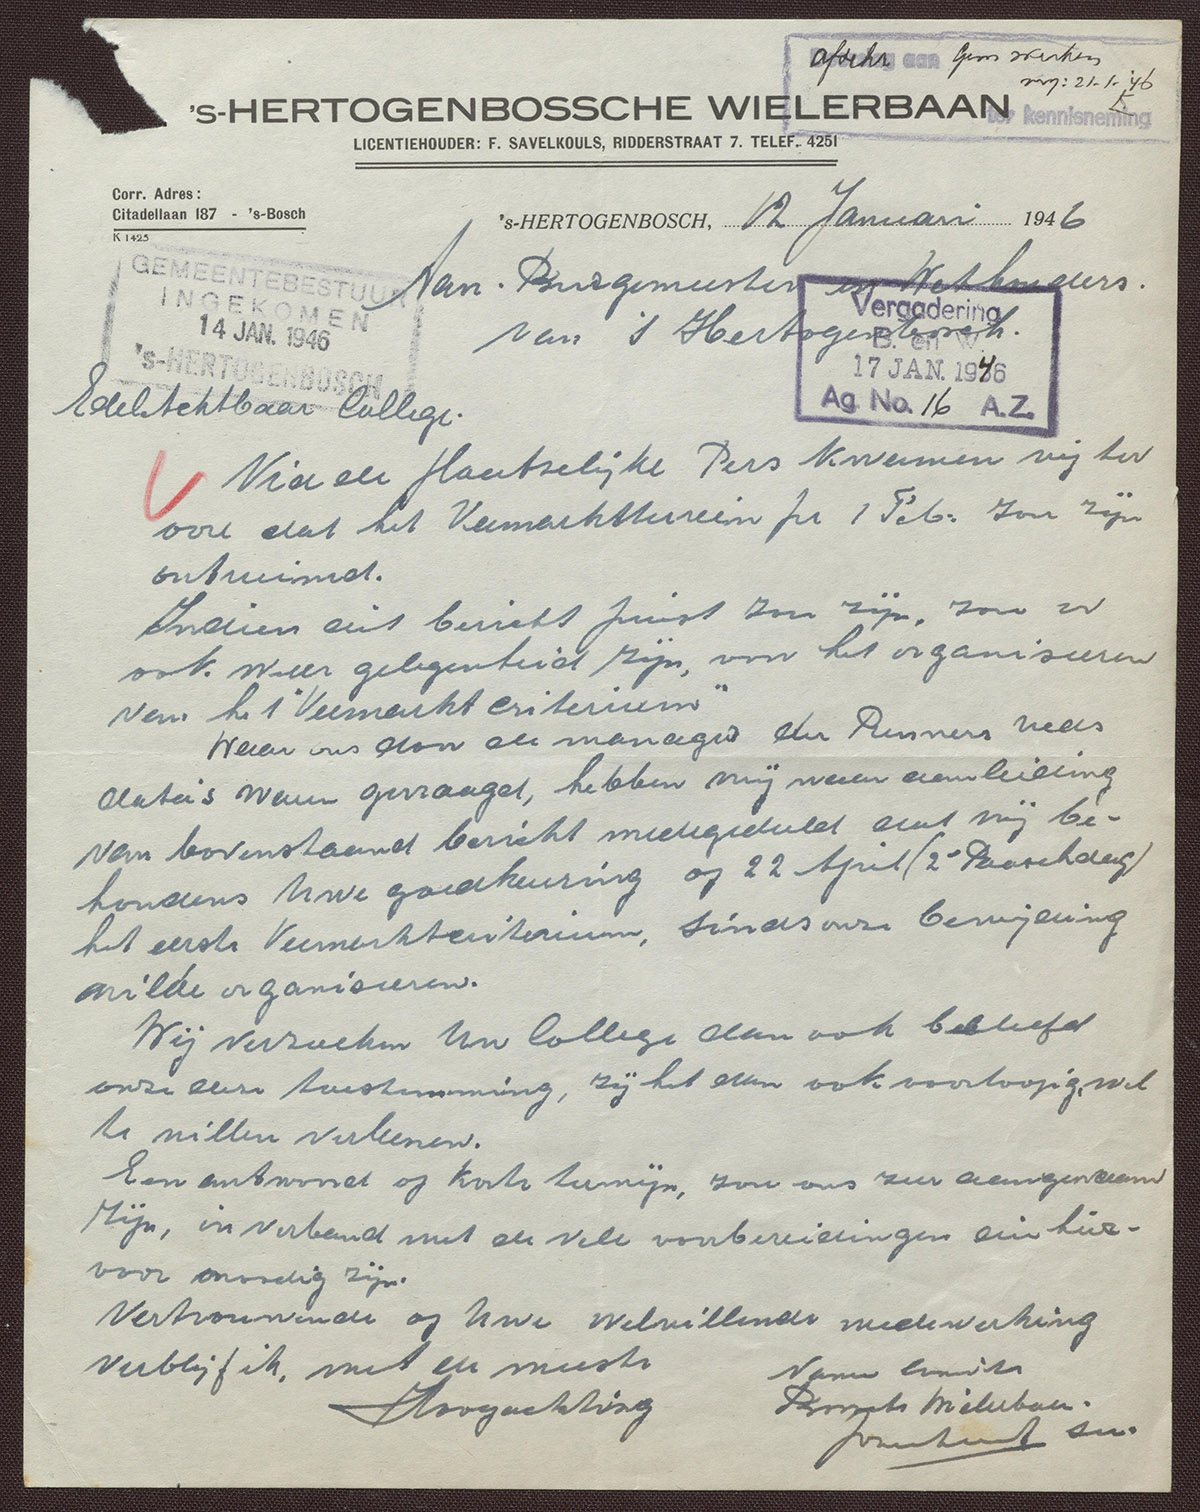 afschr aan Gem werken
verg: 21-1-'46
ter kennisneming
's-HERTOGENBOSSCHE WIELERBAAN
LICENTIEHOUDER: F. SAVELKOULS, RIDDERSTRAAT 7. TELEF. 4251
Corr. Adres:
Citadellaan 187 - 's-Bosch
K 1425
's-HERTOGENBOSCH, 12 Januari 1946
GEMEENTEBESTUUR
INGEKOMEN
14 JAN. 1946
's-HERTOGENBOSCH
Aan. Burgemeester en Wethouders.
van 's Hertogenbosch.
Vergadering
B. en W.
17 JAN. 1946
Ag. No. 16 A.Z.
EdelAchtbaar College.
Via de plaatselijke Pers kwamen wij ter
oore dat het Veemarktterrein per 1 Feb. zou zijn
ontruimd.
Indien dit bericht juist zou zijn, zou er
ook weer gelegenheid zijn, voor het organiseeren
van het "Veemarktcriterium"
Waar ons door de managers der Renners reeds
data's waren gevraagd, hebben wij naar aanleiding
van bovenstaand bericht medegedeeld dat wij be-
houdens Uwe goedkeuring op 22 April (2e Paaschdag)
het eerste Veemarktcriterium, sinds onze bevrijding
wilde organiseeren.
Wij verzoeken Uw College dan ook beleefd
onze deze toestemming, zij het dan ook voorloopig, wel
te willen verleenen.
Een antwoord op korte termijn, zou ons zeer aangenaam
zijn, in verband met de vele voorbereidingen die hier-
voor noodig zijn.
Vertrouwende op Uwe welwillende medewerking
verblijf ik, met de meeste
Hoogachting
Name Comité
Bossche Wielerbaan.
sen.